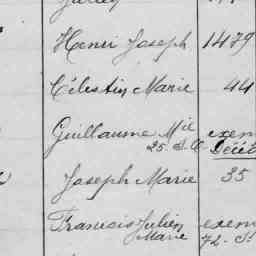 Henri Joseph 1479
Célestin Marie 44
Guillaume Mie exem
25. S. O Décéd
Joseph Marie 35
Francois Julien exem
Marie 72. S.